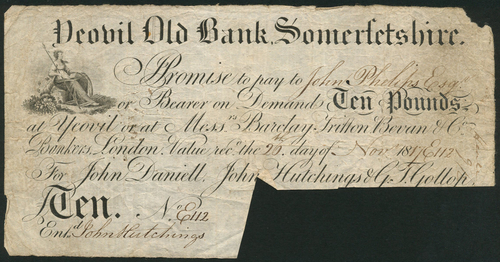 Yeovil Old Bank, Somersetshire.
I Promise to pay to John Phelips Esq.
or Bearer on Demand Ten Pounds
at Yeovil or at Messrs. Barclay Tritton Bevan & Co.
Bankers, London. Value recd. the 25th day of Nov. 1817 E112
For John Daniell, John Hutchings & G. T. Gollop
Ten. No. E112
Entd. John Hutchings